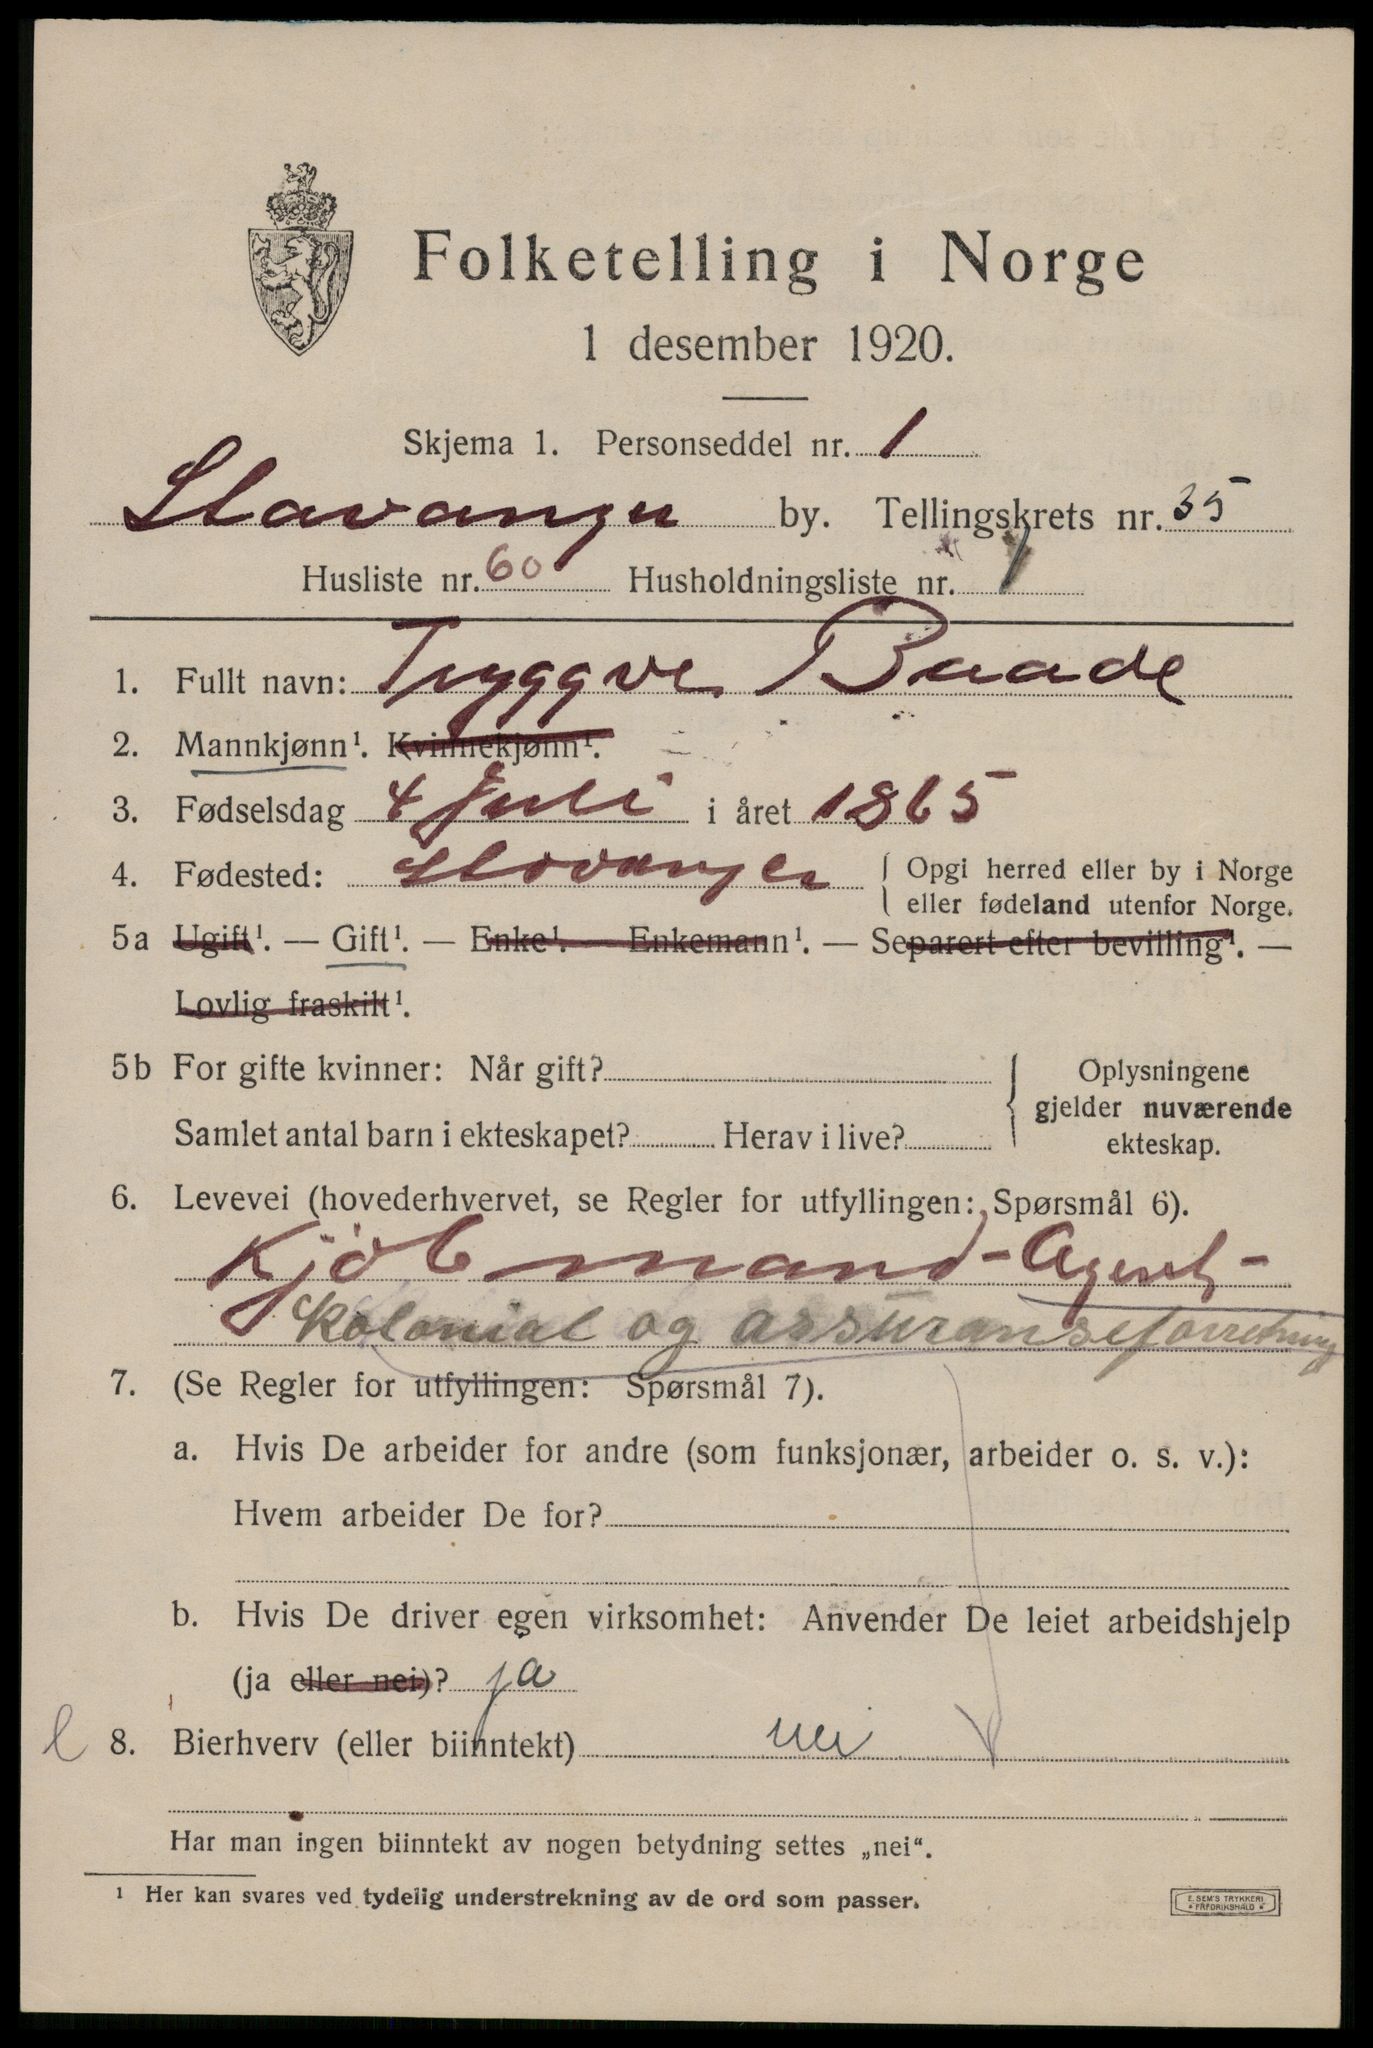 Folketelling i Norge
1 desember 1920.
Skjema 1. Personseddel nr. 1
Stavanger by. Tellingskrets nr. 35
Husliste nr. 60 Husholdningsliste nr. 1
1. Fullt navn: Tryggve Baade
2. Mannkjønn¹. Kvinnekjønn¹.
3. Fødselsdag 4 Juli i året 1865
4. Fødested: Stavanger { Opgi herred eller by i Norge
eller fødeland utenfor Norge.
5a Ugift¹. — Gift¹. — Enke¹. — Enkemann¹. — Separert efter bevilling¹. —
Lovlig fraskilt¹.
5b For gifte kvinner: Når gift? { Oplysningene
gjelder nuværende
Samlet antal barn i ekteskapet? Herav i live? ekteskap.
6. Levevei (hovederhvervet, se Regler for utfyllingen: Spørsmål 6).
Kjöbmand - Agent -
Kolonial og assuranseforretning
7. (Se Regler for utfyllingen: Spørsmål 7).
a. Hvis De arbeider for andre (som funksjonær, arbeider o. s. v.):
Hvem arbeider De for?
b. Hvis De driver egen virksomhet: Anvender De leiet arbeidshjelp
(ja eller nei)? ja
8. Bierhverv (eller biinntekt) nei
Har man ingen biinntekt av nogen betydning settes „nei“.
¹ Her kan svares ved tydelig understrekning av de ord som passer.
E. SEM'S TRYKKERI
* FREDRIKSHALD *